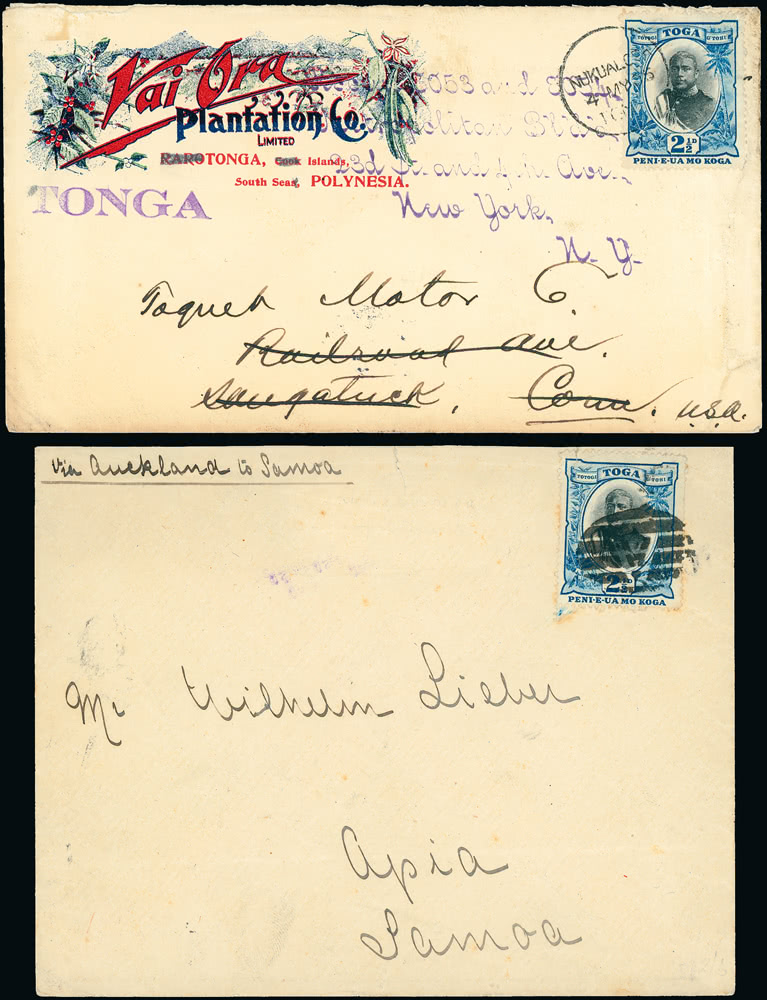 Vai Ora
Plantation Co.
LIMITED
RAROTONGA, Cook Islands,
South Seas, POLYNESIA.
TONGA
2053 and
23d St. and 4th Ave.,
New York,
N. Y.
NUKUALO
4 MY
TOGA
TOTOGI
2½D
PENI-E-UA MO KOGA
Toquet Motor Co.
Railroad Ave.
Saugatuck, Conn. U.S.A.
via Auckland to Samoa
TOGA
TOTOGI G TOHI
2½D
PENI-E-UA MO KOGA
Mr Wilhelm Lieber
Apia
Samoa